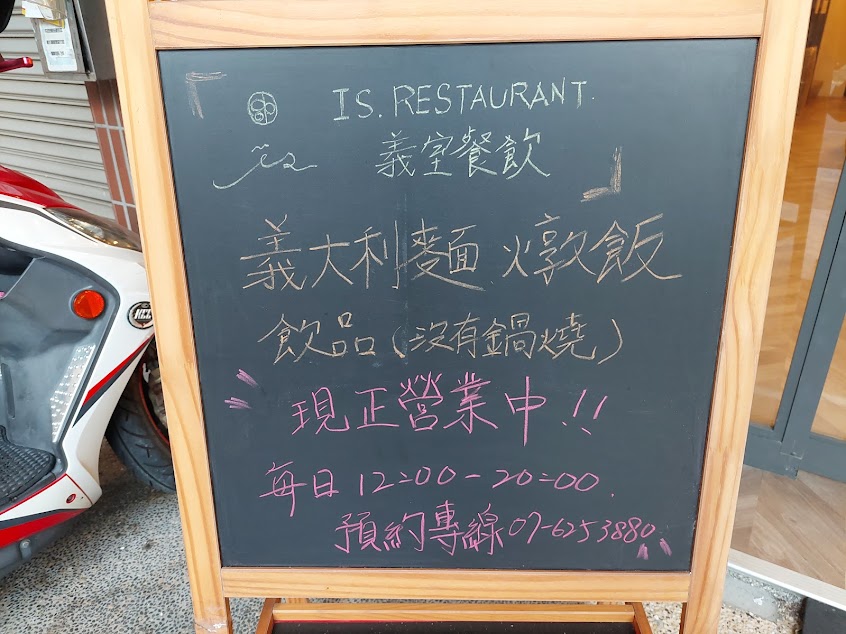 IS. RESTAURANT.
is 義室餐飲
義大利麵.燉飯
飲品(沒有鍋燒)
現正營業中!!
每日12:00-20:00.
預約專線07-6253880